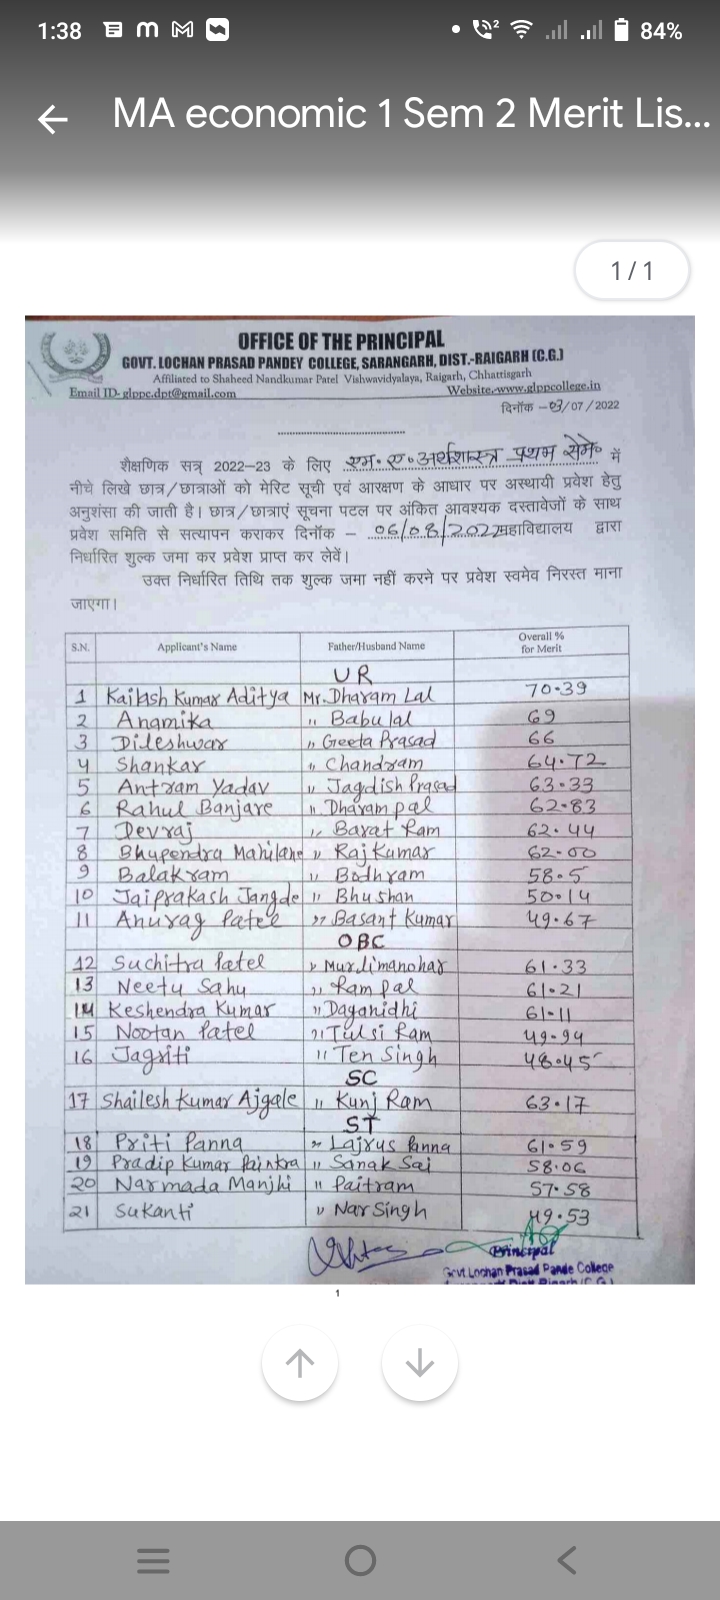 1:38
84%
MA economic 1 Sem 2 Merit Lis...
1 / 1
OFFICE OF THE PRINCIPAL
GOVT. LOCHAN PRASAD PANDEY COLLEGE, SARANGARH, DIST.-RAIGARH (C.G.)
Affiliated to Shaheed Nandkumar Patel Vishwavidyalaya, Raigarh, Chhattisgarh
Email ID- glppc.dpt@gmail.com Website.-www.glppcollege.in
दिनॉंक –03/07/2022
शैक्षणिक सत्र् 2022–23 के लिए एम. ए. अर्थशास्त्र प्रथम सेमे० में
नीचे लिखे छात्र/छात्राओं को मेरिट सूची एवं आरक्षण के आधार पर अस्थायी प्रवेश हेतु
अनुशंसा की जाती है। छात्र/छात्राएं सूचना पटल पर अंकित आवश्यक दस्तावेजों के साथ
प्रवेश समिति से सत्यापन कराकर दिनॉंक – 06/08/2022 महाविद्यालय द्वारा
निर्धारित शुल्क जमा कर प्रवेश प्राप्त कर लेवें।
उक्त निर्धारित तिथि तक शुल्क जमा नहीं करने पर प्रवेश स्वमेव निरस्त माना
जाएगा।
S.N. Applicant's Name Father/Husband Name Overall % for Merit
UR
1 Kailash Kumar Aditya Mr. Dharam Lal 70.39
2 Anamika " Babulal 69
3 Dileshwar " Geeta Prasad 66
4 Shankar " Chandram 64.72
5 Antram Yadav " Jagdish Prasad 63.33
6 Rahul Banjare " Dharampal 62.83
7 Devraj " Barat Ram 62.44
8 Bhupendra Mahilane " Raj Kumar 62.00
9 Balakram " Bodhram 58.5
10 Jaiprakash Jangde " Bhushan 50.14
11 Anurag Patel " Basant Kumar 49.67
OBC
12 Suchitra Patel " Murlimanohar 61.33
13 Neetu Sahu " Rampal 61.21
14 Keshendra Kumar " Dayanidhi 61.11
15 Nootan Patel " Tulsi Ram 49.94
16 Jagriti " Ten Singh 48.45
SC
17 Shailesh Kumar Ajgale " Kunj Ram 63.17
ST
18 Priti Panna " Lajrus Panna 61.59
19 Pradip Kumar Painkra " Sanak Sai 58.06
20 Narmada Manjhi " Paitram 57.58
21 Sukanti " Nar Singh 49.53
Principal
Govt Lochan Prasad Pande College
1